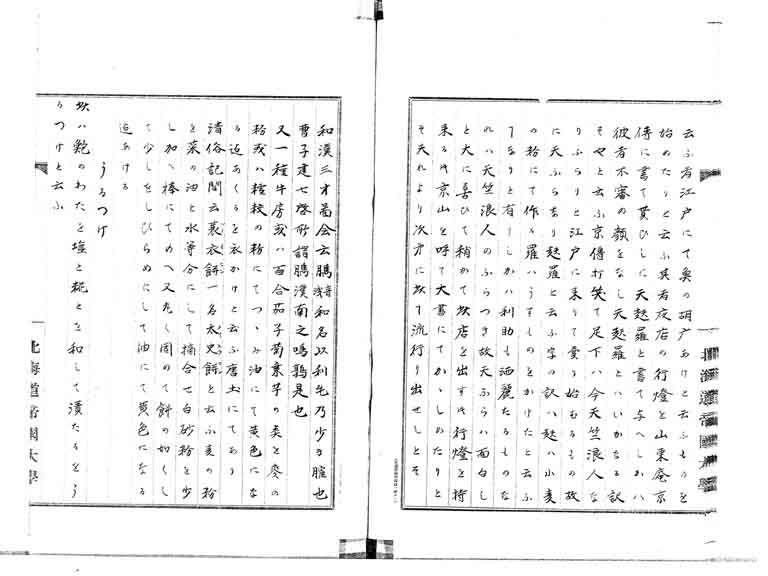 云ふ者江戸にて奥の胡广あけと云ふものを
始めたりと云ふ其者夜店の行燈を山東庵京
傳に書て貰ひしに天麩羅と書て与へしかハ
彼者不審の顔をなし天麩羅とハいかなる訳
そやと云ふ京傳打笑て足下ハ今天竺浪人な
りふらりと江戸に来りて賣り始むるもの故
に天ふらなり麩羅と云ふ字の訳ハ麩ハ小麦
の粉にて作る羅ハうすものをかけたと云ふ
てなりと有りしかハ利助も洒麗たるものな
れハ天竺浪人のふらつき故天ふらハ面白し
と大に喜ひて稍かて此店を出す時行燈を持
来る時京山を呼て大書にてかゝしめたりと
そ夫れより次才に此て流行り出せしとそ
和漢三才圖会云臇和名以利毛乃少き臛也
曹子建七啓所謂臇漢南之鳴鶉是也
又一種牛房或ハ百合茄子菊葉芋の类と麥の
粉或ハ糯粳の粉にてつゝみ油にて黄色にな
る迠あくるを衣かけと云ふ唐土にてあり
清俗記聞云裹衣餅一名太史餅と云ふ麦の粉
を菜の油と水等分にして摘合せ白砂粉を少
し加へ棒にてのへ又丸く固めて餅の如くし
て少しをしひらめにして油にて黄色になる
迠あける
うるつけ
此ハ鮑のわたを塩と糀とを和して漬たるとう
るつけと云ふ
北海道帝國大學
北海道帝國大學